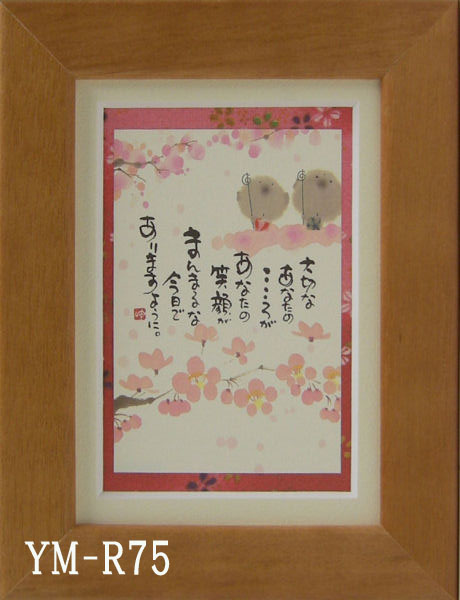 大切な
あなたの
こころが
あなたの
笑顔が
まんまるな
今日で
ありますように。
吟
YM-R75